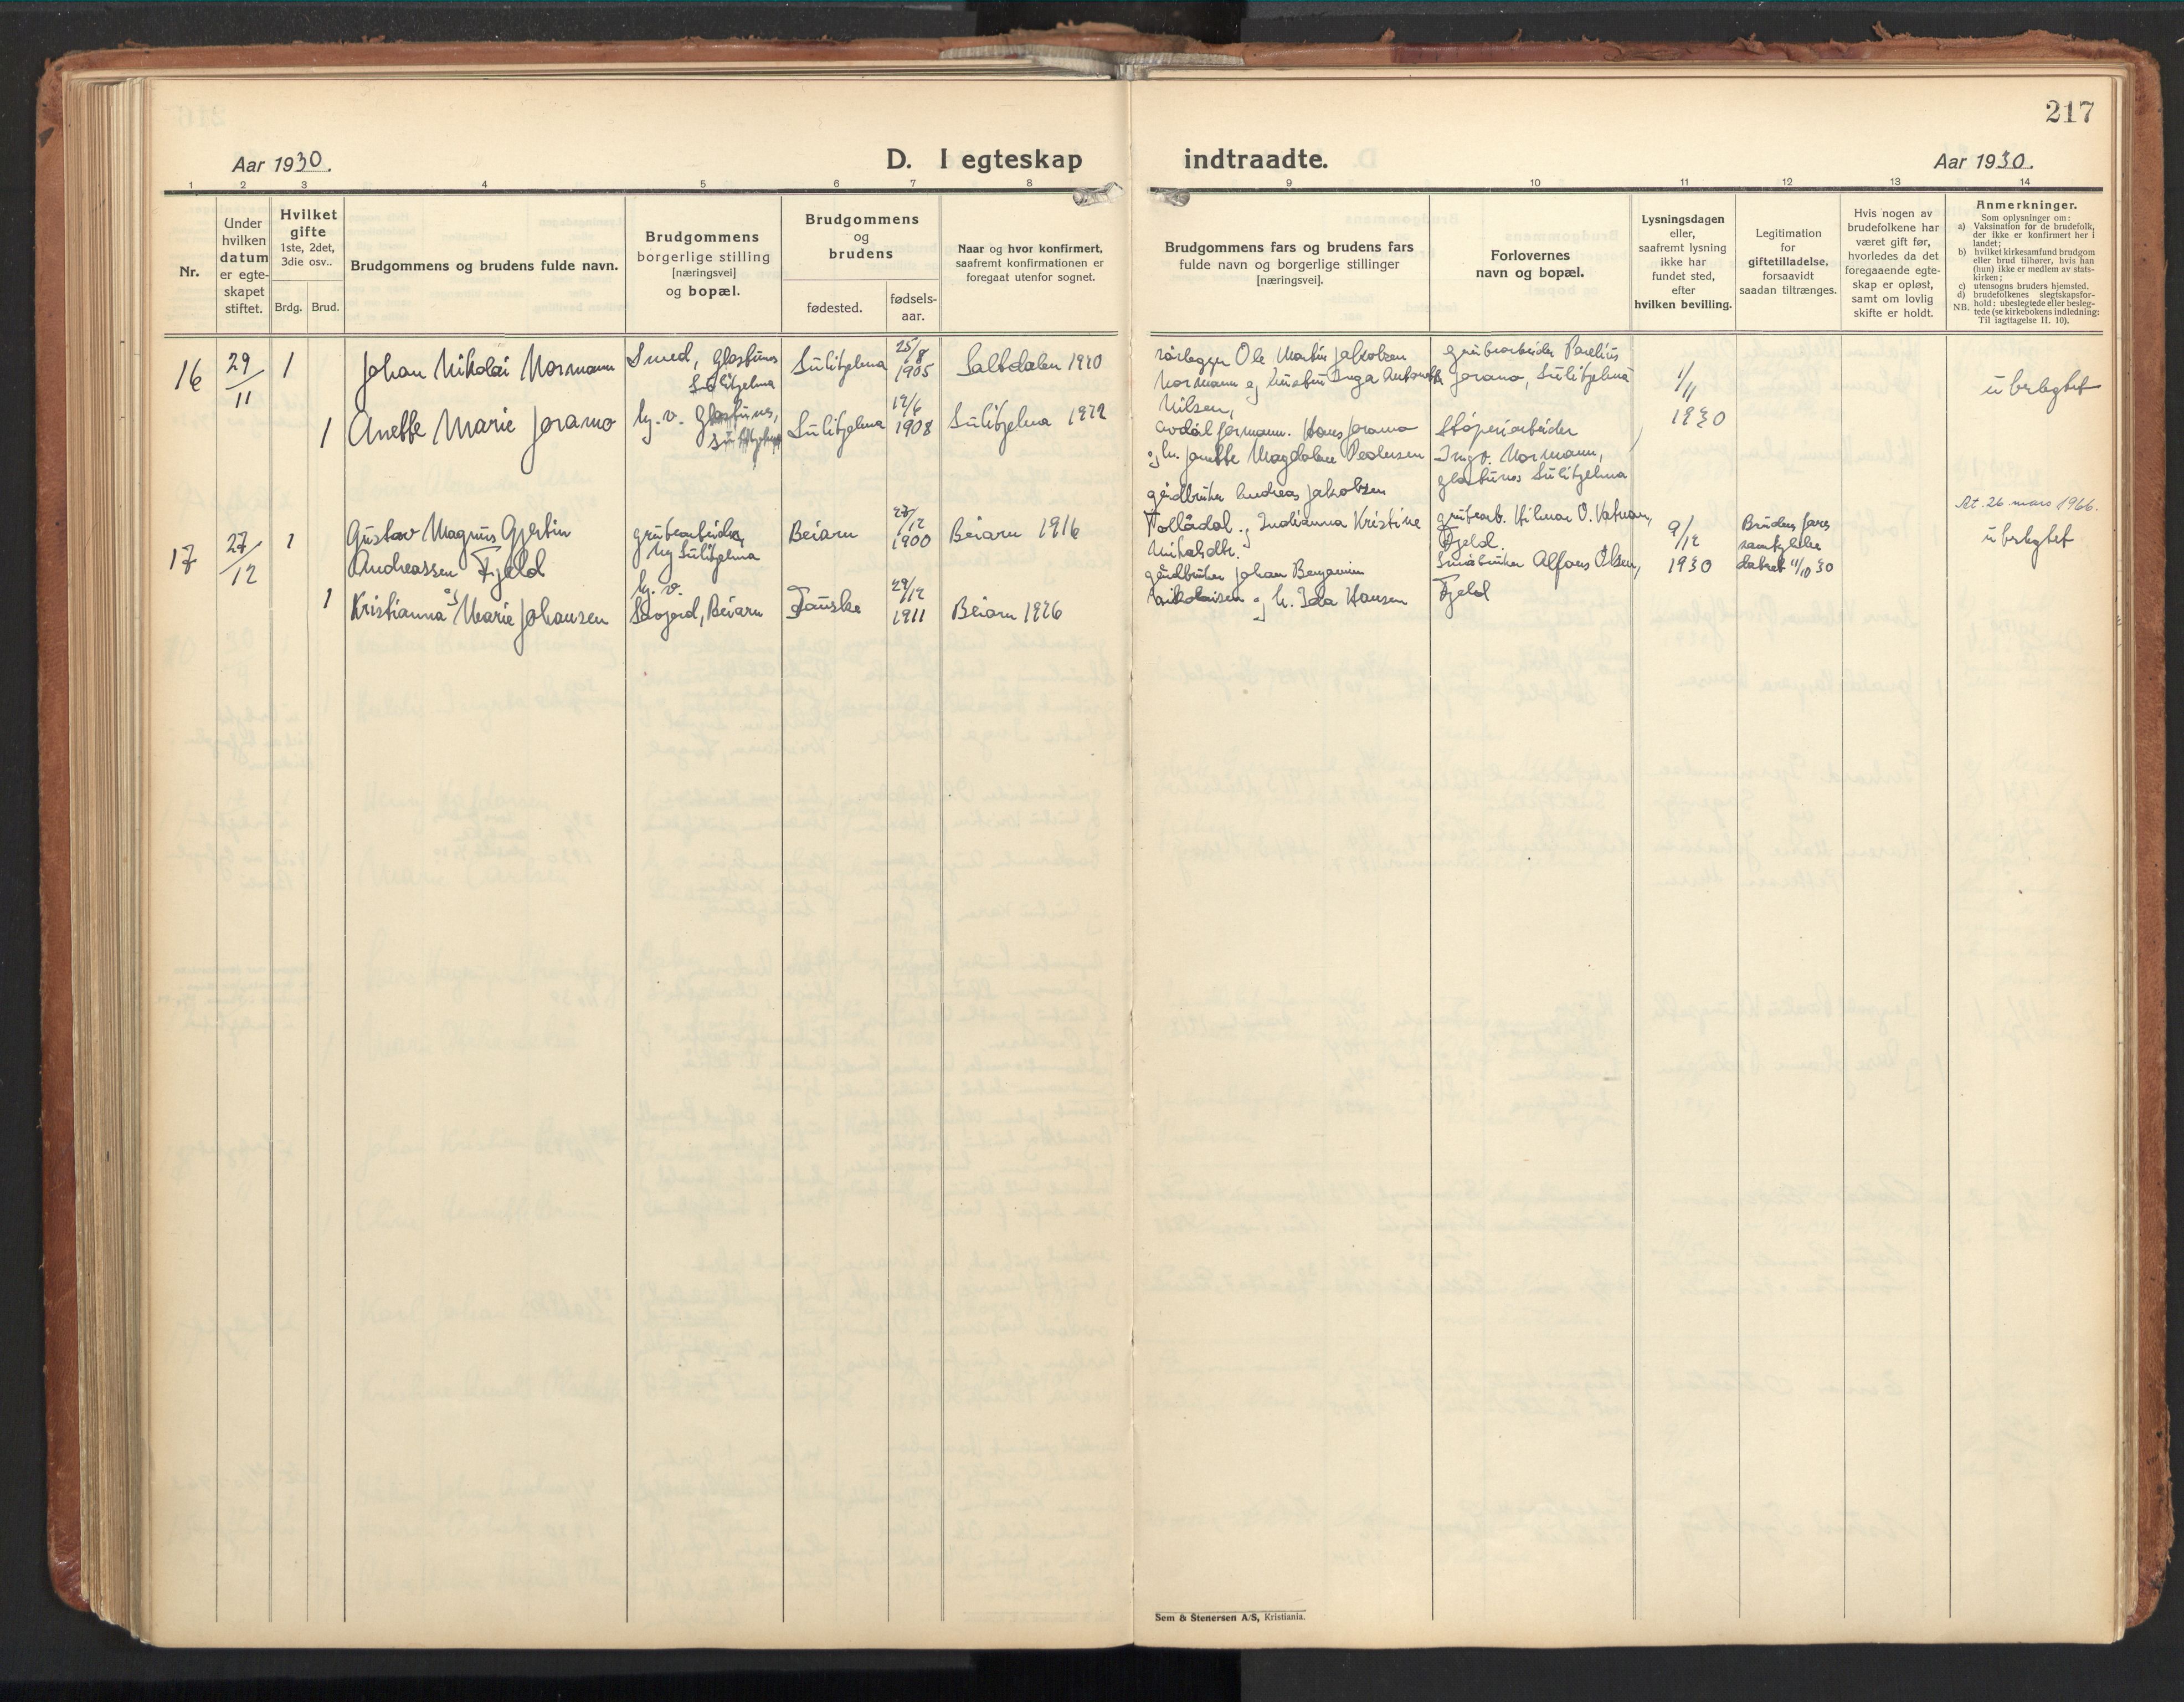 217
Aar 1930.
D. I egteskap
indtraadte.
Aar 1930.
1 2 3 4 5 6 7 8 9 10 11 12 13 14
Nr.
Under
hvilken
datum
er egte-
skapet
stiftet.
Hvilket
gifte
1ste, 2det,
3die osv..
Brdg. Brud.
Brudgommens og brudens fulde navn.
Brudgommens
borgerlige stilling
[næringsvei]
og bopæl.
Brudgommens
og
brudens
fødested.
fødsels-
aar.
Naar og hvor konfirmert,
saafremt konfirmationen er
foregaat utenfor sognet.
Brudgommens fars og brudens fars
fulde navn og borgerlige stillinger
[næringsvei].
Forlovernes
navn og bopæl.
Lysningsdagen
eller,
saafremt lysning
ikke har
fundet sted,
efter
hvilken bevilling.
Legitimation
for
giftetilladelse,
forsaavidt
saadan tiltrænges.
Hvis nogen av
brudefolkene har
været gift før,
hvorledes da det
foregaaende egte-
skap er opløst,
samt om lovlig
skifte er holdt.
Anmerkninger.
Som oplysninger om:
a) Vaksination for de brudefolk,
der ikke er konfirmert her i
landet;
b) hvilket kirkesamfund brudgom
eller brud tilhører, hvis han
(hun) ikke er medlem av stats-
kirken;
c) utensogns bruders hjemsted.
d) brudefolkenes slegtskapsfor-
hold: ubeslegtede eller besleg-
NB. tede (se kirkebokens indledning:
Til iagttagelse II. 10).
16
29/11
1
Johan Nikolai Normann
Smed, Glastunes
Sulitjelma
Sulitjelma
25/8
1905
Saltdalen 1920
rørlegger Ole Martin Jakobsen
Normann og hustru Inga
Nilsen,
grubearbeider Parelius
Joramo, Sulitjelma
1/11
1930
ubeslegtet
1
Anette Marie Joramo
hj. v. Glastunes,
Sulitjelma
Sulitjelma
12/6
1908
Sulitjelma 1922
avdøl formann. Hans Joramo
og h. Janette Magdalene Pedersen
Støperiarbeider
Ingv. Normann,
glastunes Sulitjelma
17
27/12
1
Gustav Magnus Gjertin
Andreassen Fjeld
grubearbeider,
Ny Sulitjelma
Beiarn
27/12
1900
Beiarn 1916
gårdbruker Andreas Jakobsen
Tollådal og Indianna Kristine
grubearb. Hilmar O. Vatnan,
Fjeld
9/12
1930
Brudens fars
samtykke
datert 11/10 30
At. 26 mars 1966.
ubeslegtet
1
Kristianna Marie Johansen
hj. v.
Savjord, Beiarn
Fauske
29/12
1911
Beiarn 1926
gårdbruker Johan Benjamin
Nikolaisen og h. Ida Hansen
Småbruker Alfons Olsen,
Fjeld
Sem & Stenersen A/S, Kristiania.